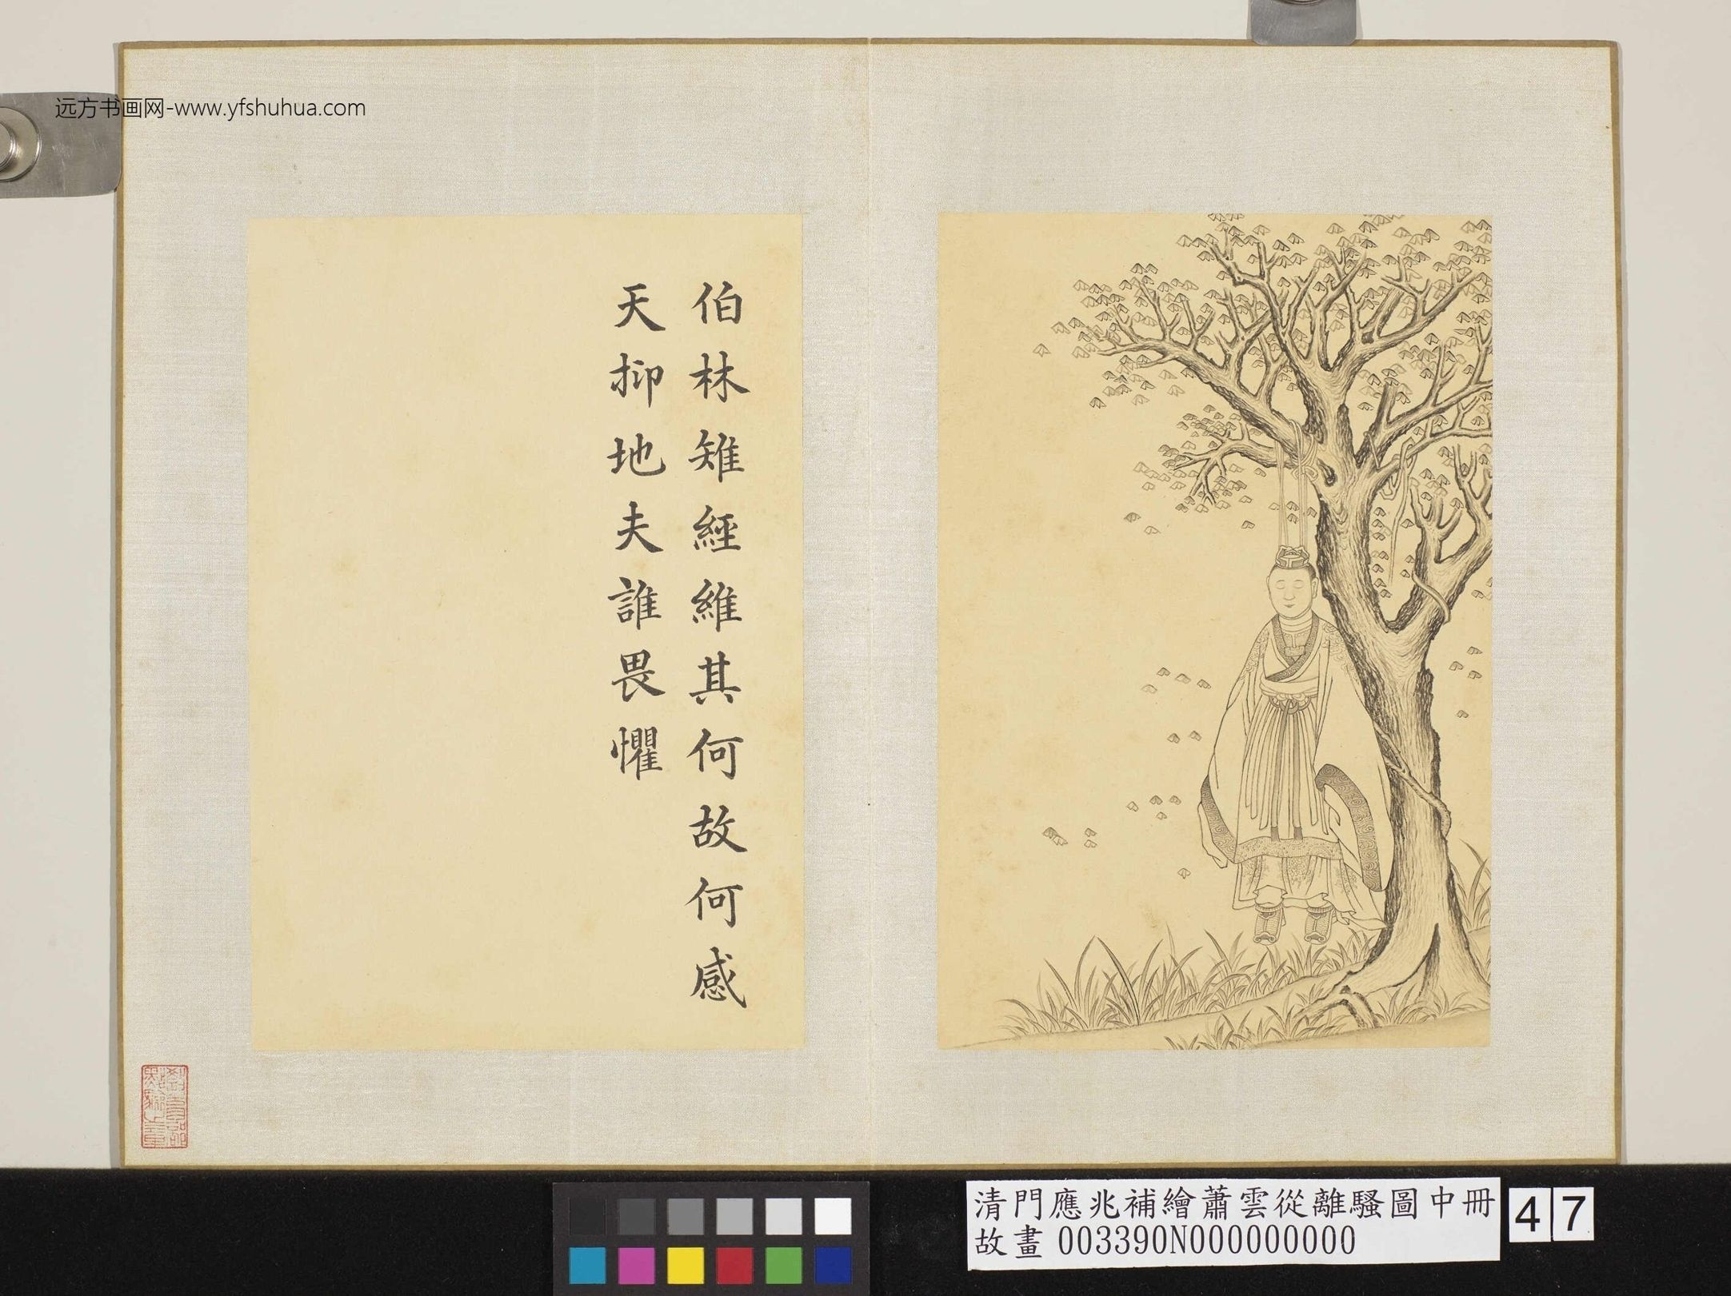 远方书画网-www.yfshuhua.com
伯林雉經維其何故何感
天抑地夫誰畏懼
清門應兆補繪蕭雲從離騷圖中冊
故畫 003390N000000000
47